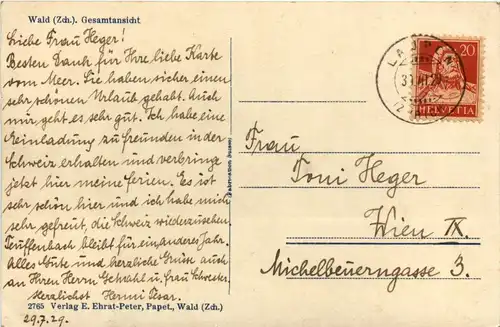 Wald (Zch.) Gesamtansicht
Liebe Frau Heger!
Besten Dank für Ihre liebe Karte
vom Meer. Sie haben sicher einen
sehr schönen Urlaub gehabt. Auch
mir geht es sehr gut. Ich habe eine
Einladung zu Freunden in der
Schweiz erhalten und verbringe
jetzt hier meine Ferien. Es ist
sehr schön hier und ich habe mich
sehr gefreut, die Schweiz wiederzusehen.
Teuffenbach bleibt für ein anderes Jahr.
Alles Gute und herzliche Grüsse auch
an Ihren Herrn Gemahl u. Frau Schwester.
Herzlichst Hermi Tesar.
2765 Verlag E. Ehrat-Peter, Papet., Wald (Zch.)
29.7.29.
20
HELVETIA
Frau
Toni Heger
Wien IX.
Michelbeuerngasse 3.